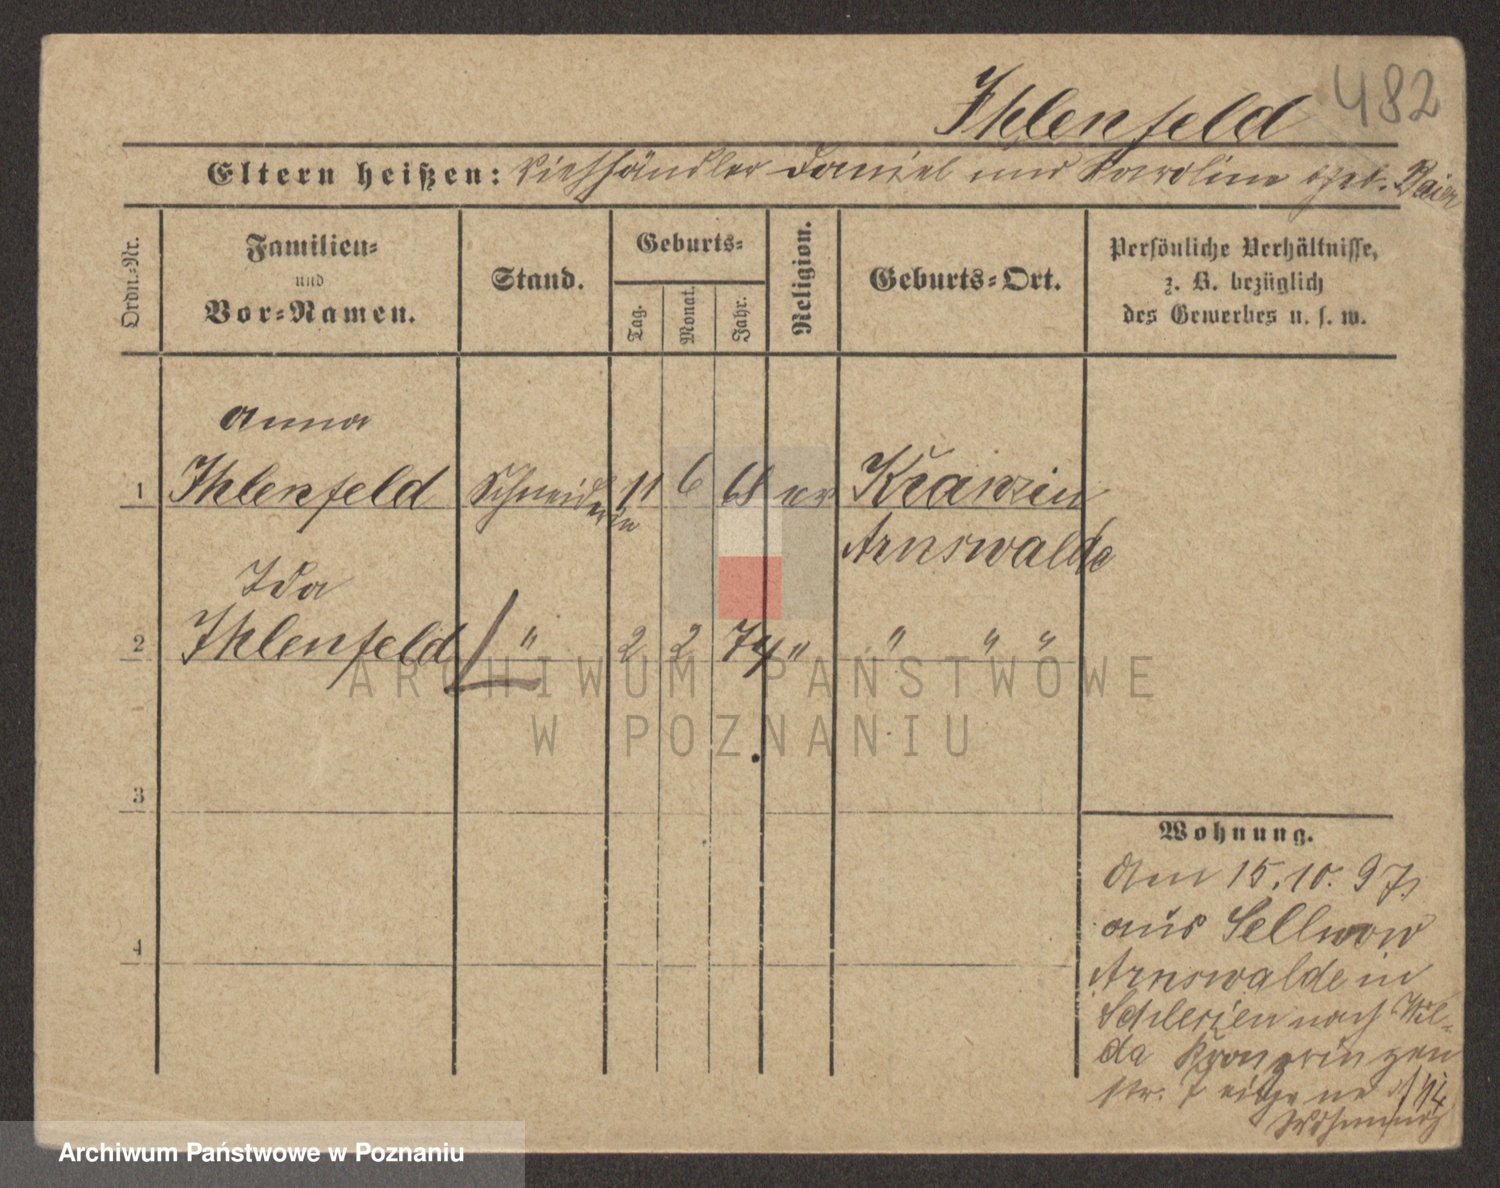 Ihlenfeld 482
Eltern heißen: Viehhändler Daniel und Karoline geb. Baier
Ordn.-Nr.
Familien-
und
Vor-Namen.
Stand.
Geburts-
Tag.
Monat.
Jahr.
Religion.
Geburts-Ort.
Persönliche Verhältnisse,
z. B. bezüglich
des Gewerbes u. s. w.
Anna
1 Ihlenfeld Schneiderin 11 6 68 ev Kranzin
Arnswalde
Ida
2 Ihlenfeld " 2 2 74 " " " "
3
4
Wohnung.
Am 15.10.97
aus Sellnow
Arnswalde in
Schlesien nach Wil-
da Kronprinzen
str. 7 eigene
Wohnung
ARCHIWUM PAŃSTWOWE
W POZNANIU
Archiwum Państwowe w Poznaniu